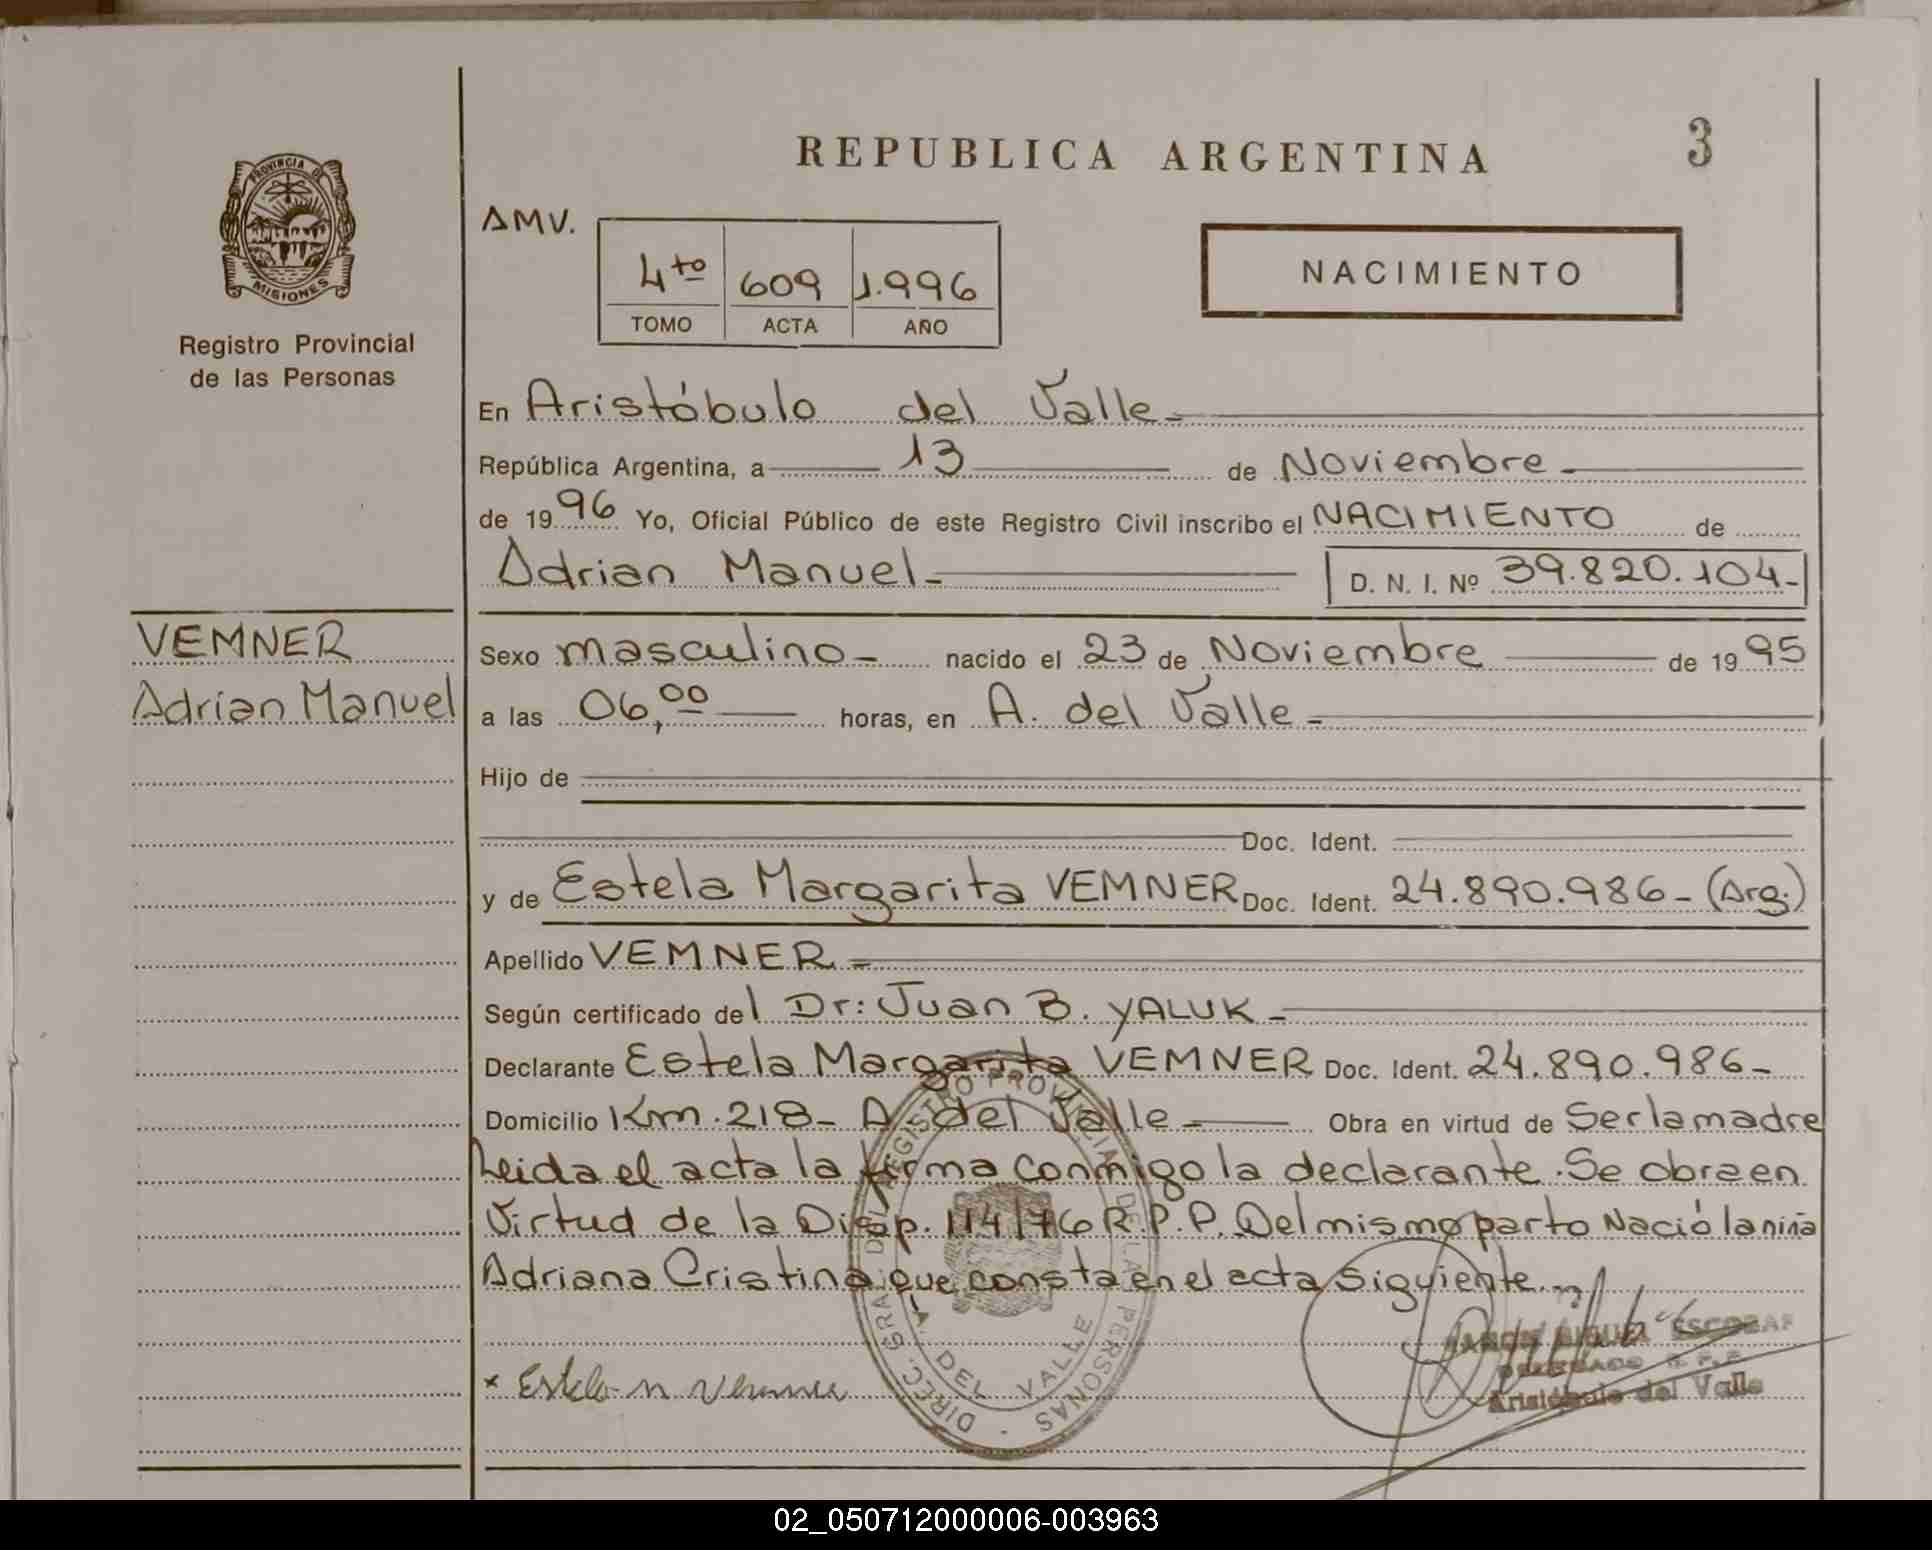 REPUBLICA ARGENTINA
3
PROVINCIA DE
MISIONES
Registro Provincial
de las Personas
AMV.
4to 609 1.996
TOMO ACTA AÑO
NACIMIENTO
En Aristóbulo del Valle-
República Argentina, a 13 de Noviembre-
de 1996 Yo, Oficial Público de este Registro Civil inscribo el NACIMIENTO de
Adrian Manuel- D. N. I. Nº 39.820.104-
VEMNER
Adrian Manuel
Sexo masculino- nacido el 23 de Noviembre de 1995
a las 06,00 horas, en A. del Valle-
Hijo de
Doc. Ident.
y de Estela Margarita VEMNER Doc. Ident. 24.890.986- (Arg.)
Apellido VEMNER-
Según certificado del Dr: Juan B. YALUK-
Declarante Estela Margarita VEMNER Doc. Ident. 24.890.986-
Domicilio Km. 218- A. del Valle- Obra en virtud de Ser la madre
Leida el acta la firma conmigo la declarante. Se obra en
Virtud de la Disp. 114/76 R.P.P. Del mismo parto Nació la niña
Adriana Cristina que consta en el acta siguiente.
x Estela M Vemner
DIREC. GRAL. DEL REGISTRO PROVINCIAL DE LAS PERSONAS
A. DEL VALLE
RAMON MIGUEL ESCOBAR
DELEGADO R. P. P.
Aristóbulo del Valle
02_050712000006-003963